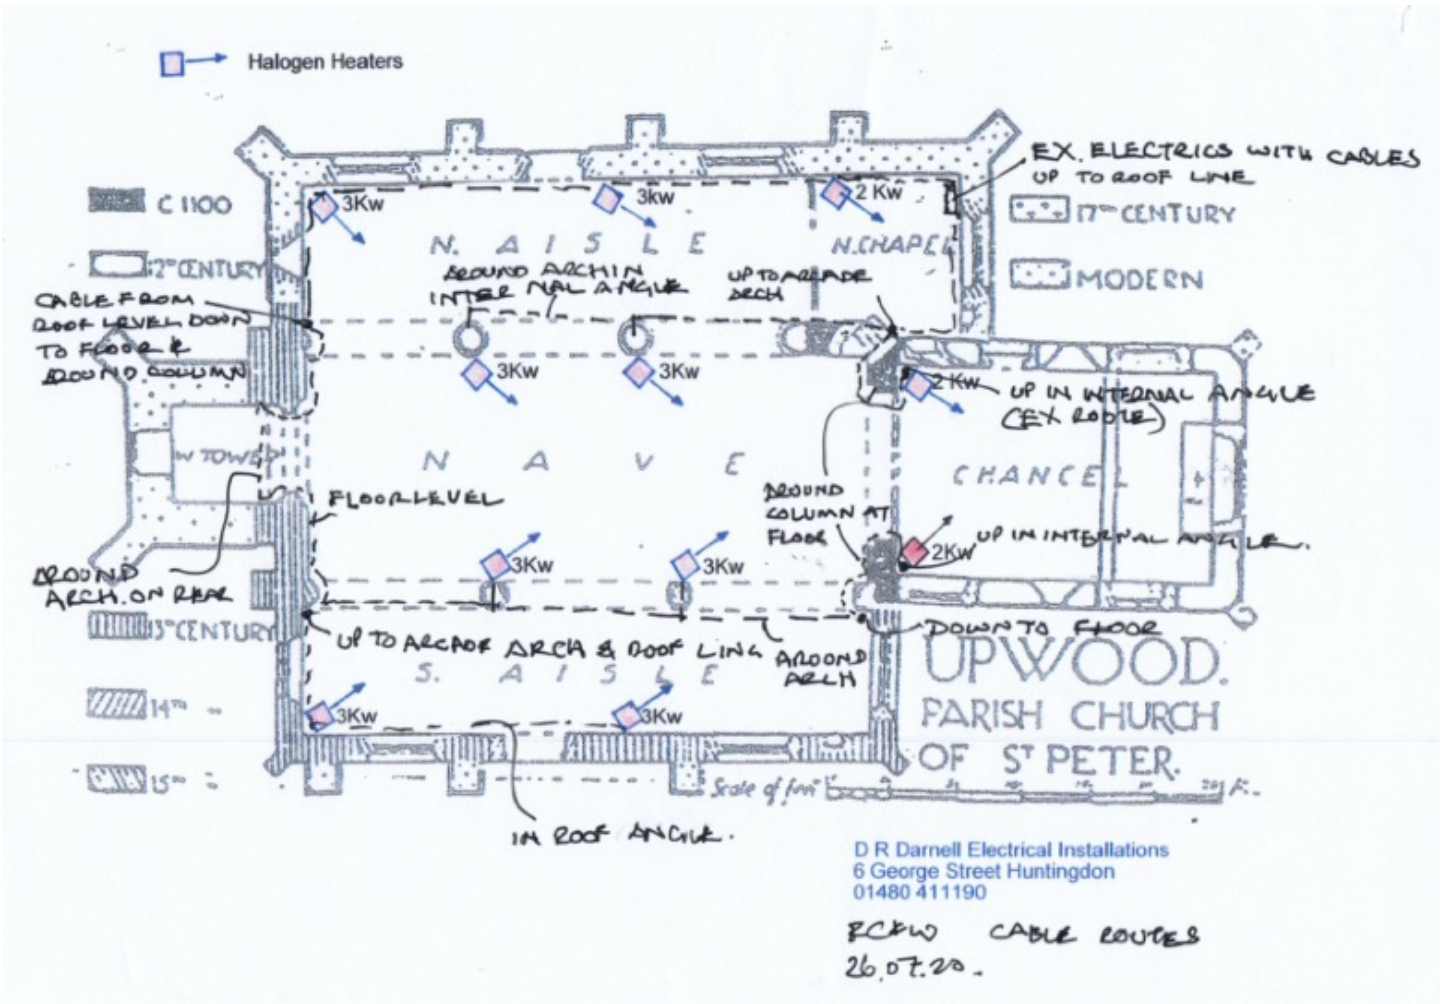 Halogen Heaters
EX. ELECTRICS WITH CABLES
UP TO ROOF LINE
C 1100
12TH CENTURY
17TH CENTURY
MODERN
3Kw
3kw
2 Kw
N. AISLE
N. CHAPEL
AROUND ARCH IN
INTERNAL ANGLE
UP TO ARCADE
ARCH
CABLE FROM
ROOF LEVEL DOWN
TO FLOOR &
AROUND COLUMN
3Kw
3Kw
2 Kw
UP IN INTERNAL ANGLE
(EX ROUTE)
W TOWER
NAVE
CHANCEL
FLOOR LEVEL
AROUND
COLUMN AT
FLOOR
3Kw
3Kw
2Kw
UP IN INTERNAL ANGLE.
AROUND
ARCH. ON REAR
13TH CENTURY
UP TO ARCADE ARCH & ROOF LING
AROUND
ARCH
DOWN TO FLOOR
S. AISLE
3Kw
3Kw
14TH "
15TH "
UPWOOD.
PARISH CHURCH
OF ST PETER.
Scale of feet
IN ROOF ANGLE.
D R Darnell Electrical Installations
6 George Street Huntingdon
01480 411190
CABLE ROUTES
26.07.20.